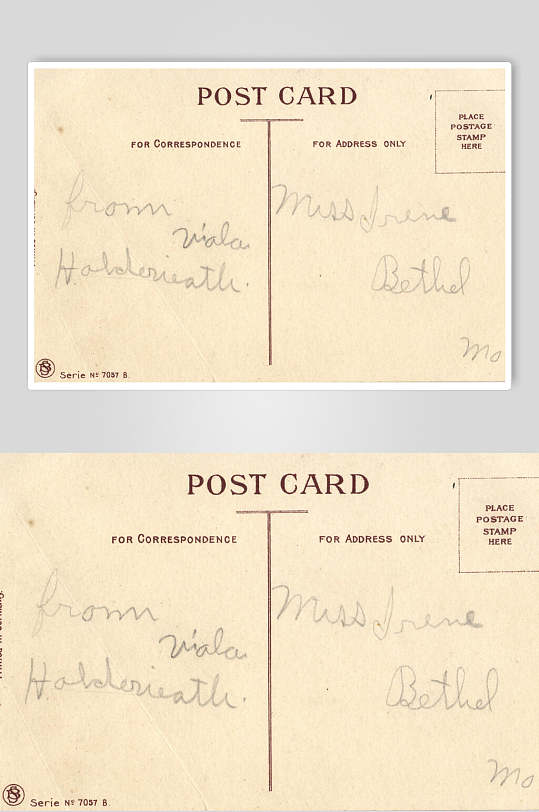 POST CARD
FOR CORRESPONDENCE
FOR ADDRESS ONLY
PLACE
POSTAGE
STAMP
HERE
from
Viola
Miss Irene
Bethel
Mo
Serie Nº 7057 B.
POST CARD
FOR CORRESPONDENCE
FOR ADDRESS ONLY
PLACE
POSTAGE
STAMP
HERE
from
Viola
Miss Irene
Bethel
Mo
Printed in Germany.
Serie Nº 7057 B.